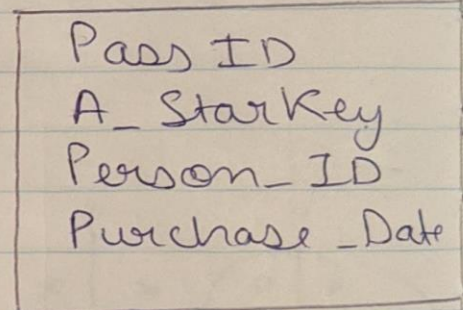 Pass ID
A_StarKey
Person_ID
Purchase_Date